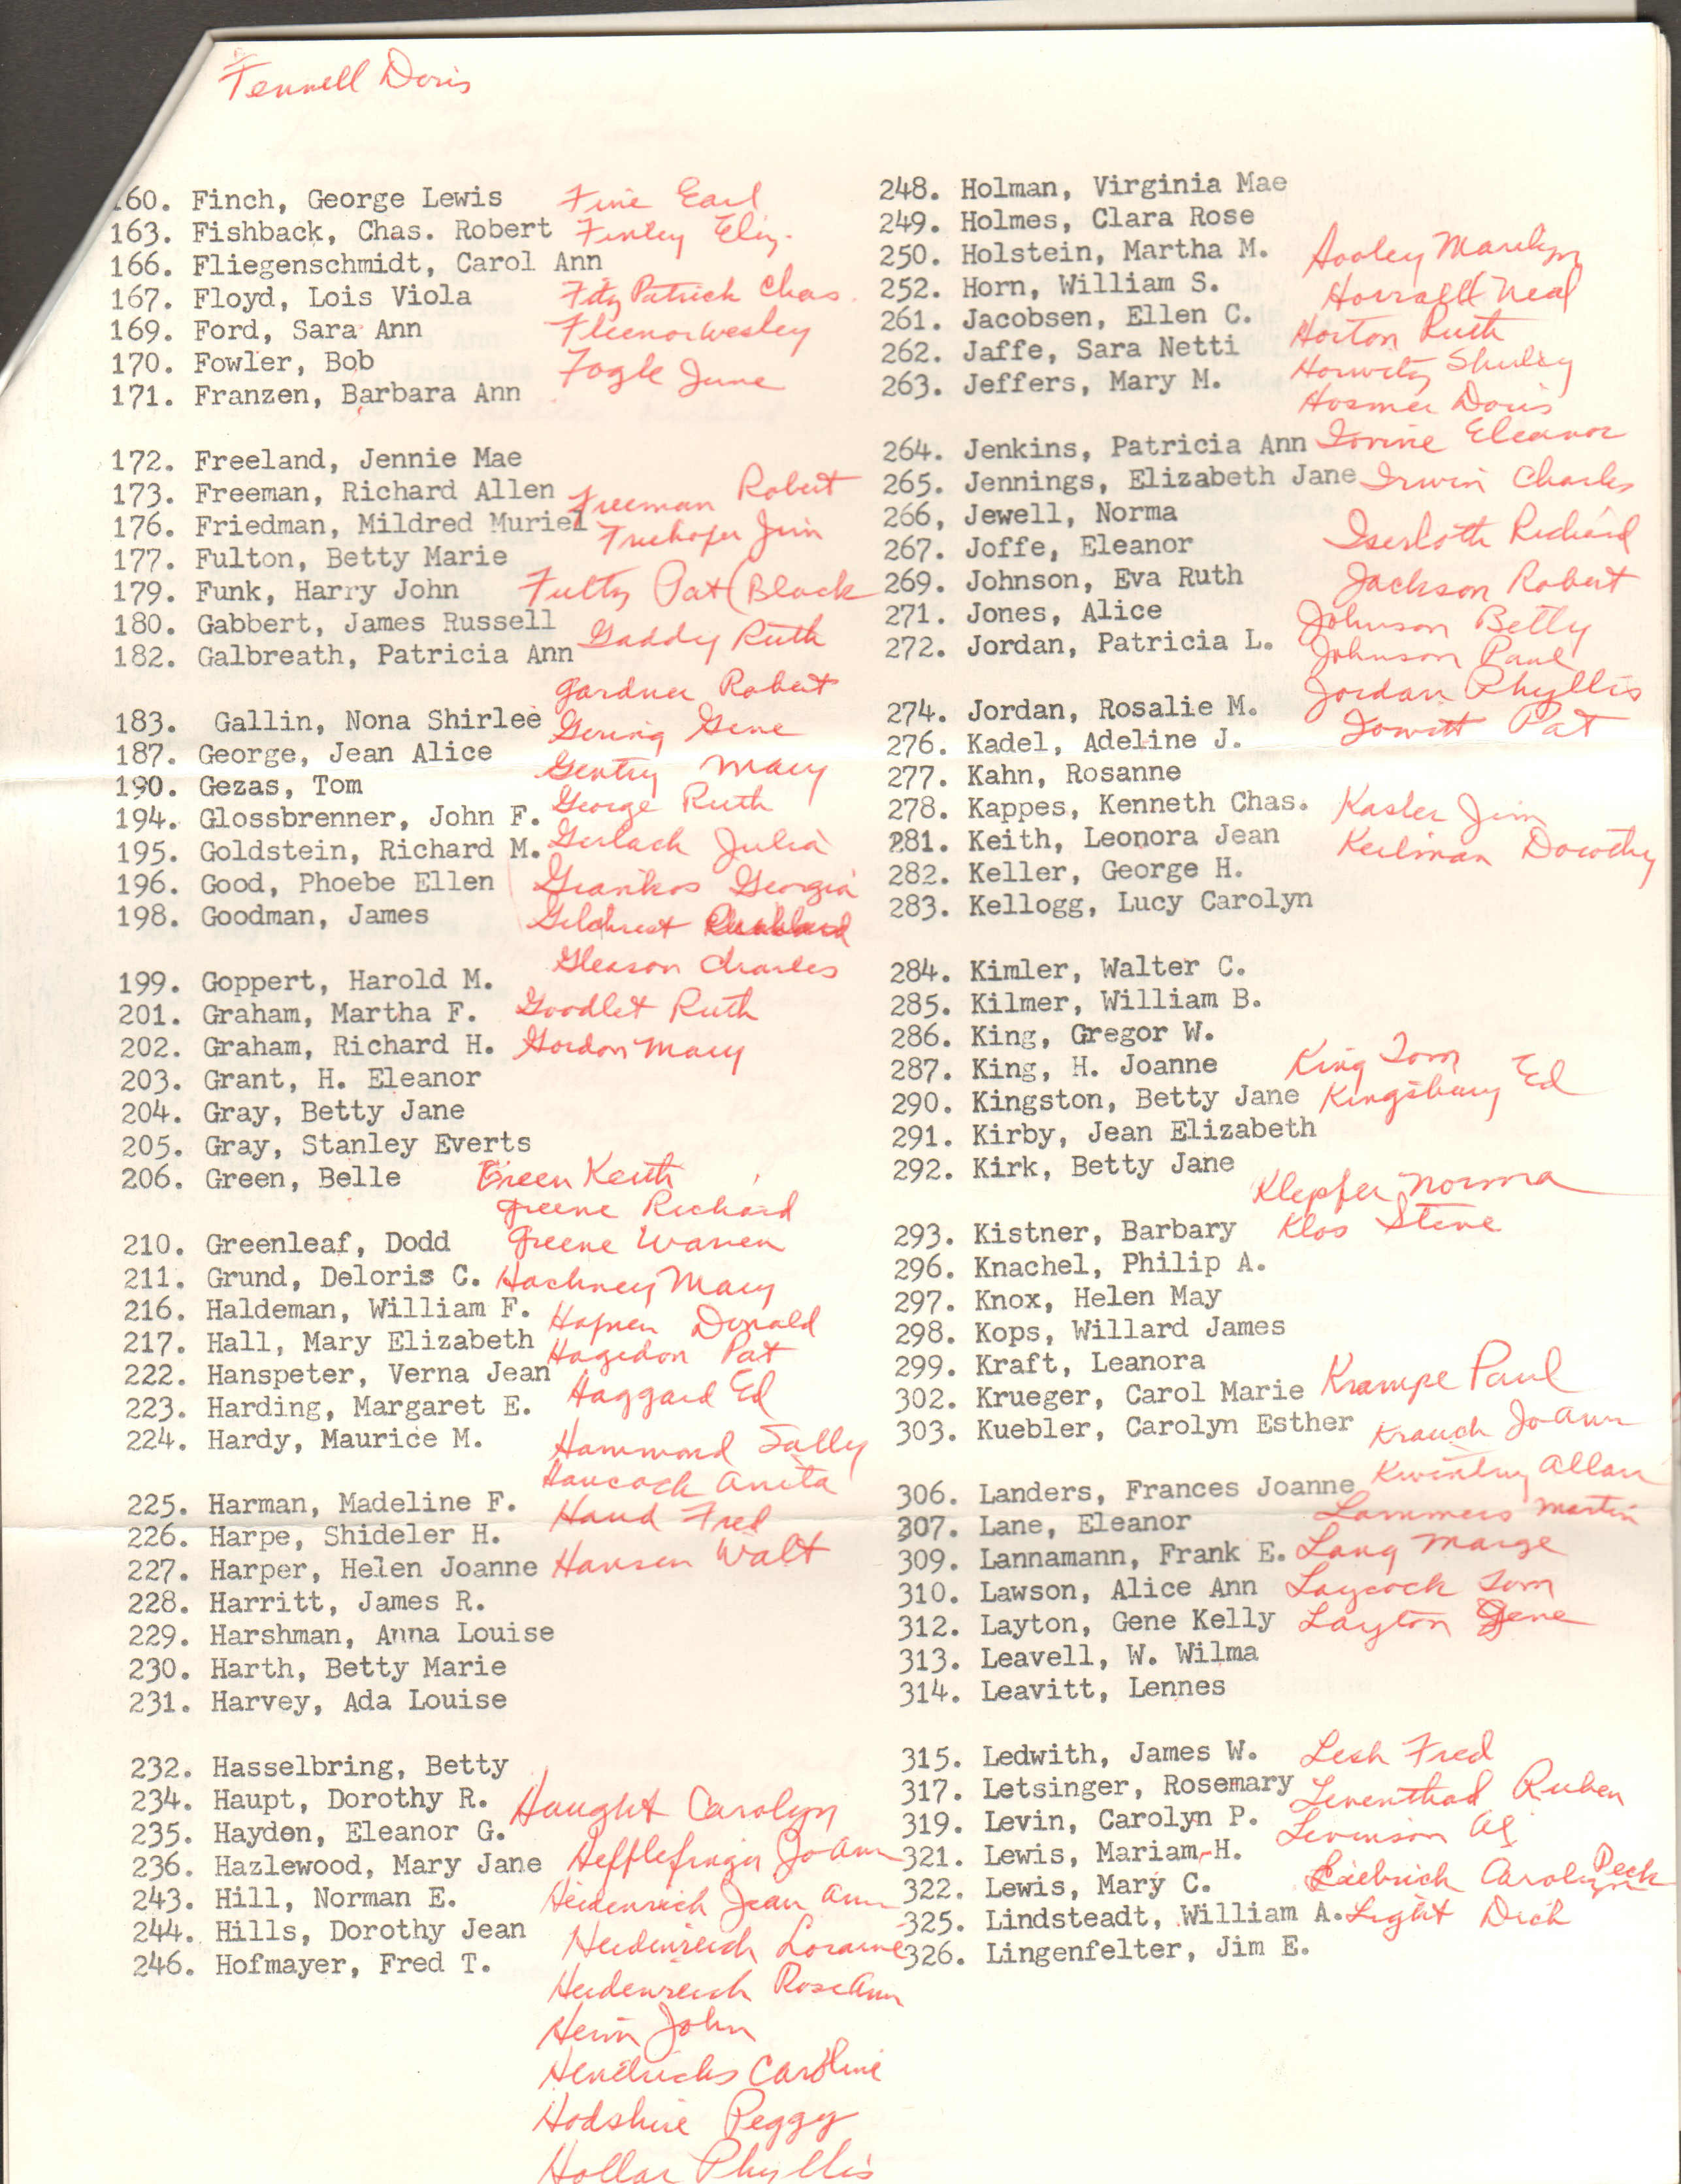 Fennell Doris
160. Finch, George Lewis Fine Earl
163. Fishback, Chas. Robert Finley Eliz.
166. Fliegenschmidt, Carol Ann
167. Floyd, Lois Viola Fitz Patrick Chas.
169. Ford, Sara Ann Fleenor Wesley
170. Fowler, Bob Fogle June
171. Franzen, Barbara Ann
172. Freeland, Jennie Mae
173. Freeman, Richard Allen Freeman Robert
176. Friedman, Mildred Muriel Jim
177. Fulton, Betty Marie
179. Funk, Harry John Fultz Pat (Black
180. Gabbert, James Russell Gaddy Ruth
182. Galbreath, Patricia Ann
Gardner Robert
183. Gallin, Nona Shirlee Gering Gene
187. George, Jean Alice Gentry Mary
190. Gezas, Tom George Ruth
194. Glossbrenner, John F.
195. Goldstein, Richard M. Gerlach Julia
196. Good, Phoebe Ellen Giankos Georgia
198. Goodman, James Gilchrist
Gleason Charles
199. Goppert, Harold M.
201. Graham, Martha F. Goodlet Ruth
202. Graham, Richard H. Gordon Mary
203. Grant, H. Eleanor
204. Gray, Betty Jane
205. Gray, Stanley Everts
206. Green, Belle Green Keith
Greene Richard
210. Greenleaf, Dodd Greene Warren
211. Grund, Deloris C. Hackney Mary
216. Haldeman, William F. Hafner Donald
217. Hall, Mary Elizabeth Hagedon Pat
222. Hanspeter, Verna Jean
223. Harding, Margaret E. Haggard Ed
224. Hardy, Maurice M. Hammond Sally
Hancock Anita
225. Harman, Madeline F. Hand Fred
226. Harpe, Shideler H.
227. Harper, Helen Joanne Hansen Walt
228. Harritt, James R.
229. Harshman, Anna Louise
230. Harth, Betty Marie
231. Harvey, Ada Louise
232. Hasselbring, Betty
234. Haupt, Dorothy R. Haught Carolyn
235. Hayden, Eleanor G.
236. Hazlewood, Mary Jane Hefflefinger JoAnn
243. Hill, Norman E. Heidenreich Jean Ann
244. Hills, Dorothy Jean
246. Hofmayer, Fred T. Heidenreich Loraine
Heidenreich RoseAnn
Hein John
Hendricks Caroline
Hodshire Peggy
Hollar Phyllis
248. Holman, Virginia Mae
249. Holmes, Clara Rose
250. Holstein, Martha M. Hooley Marilyn
252. Horn, William S. Horrall Neal
261. Jacobsen, Ellen C. Horton Ruth
262. Jaffe, Sara Netti Horwitz Shirley
263. Jeffers, Mary M. Hosmer Doris
264. Jenkins, Patricia Ann Iovine Eleanor
265. Jennings, Elizabeth Jane Irwin Charles
266, Jewell, Norma
267. Joffe, Eleanor Iserloth Richard
269. Johnson, Eva Ruth Jackson Robert
271. Jones, Alice Johnson Betty
272. Jordan, Patricia L. Johnson Paul
Jordan Phyllis
274. Jordan, Rosalie M. Jowitt Pat
276. Kadel, Adeline J.
277. Kahn, Rosanne
278. Kappes, Kenneth Chas. Kasler Jim
281. Keith, Leonora Jean Keilman Dorothy
282. Keller, George H.
283. Kellogg, Lucy Carolyn
284. Kimler, Walter C.
285. Kilmer, William B.
286. King, Gregor W.
287. King, H. Joanne King Tom
290. Kingston, Betty Jane Kingsbury Ed
291. Kirby, Jean Elizabeth
292. Kirk, Betty Jane Klepfer Norma
293. Kistner, Barbary Klos Steve
296. Knachel, Philip A.
297. Knox, Helen May
298. Kops, Willard James
299. Kraft, Leanora
302. Krueger, Carol Marie Krampe Paul
303. Kuebler, Carolyn Esther Krauch JoAnn
306. Landers, Frances Joanne Allan
307. Lane, Eleanor Lammers Martin
309. Lannamann, Frank E. Lang Marge
310. Lawson, Alice Ann Laycock Tom
312. Layton, Gene Kelly Layton Gene
313. Leavell, W. Wilma
314. Leavitt, Lennes
315. Ledwith, James W. Lesh Fred
317. Letsinger, Rosemary Leventhal Ruben
319. Levin, Carolyn P. Levinson Al
321. Lewis, Mariam H.
322. Lewis, Mary C. Liebrich Carolyn Peck
325. Lindsteadt, William A. Light Dick
326. Lingenfelter, Jim E.